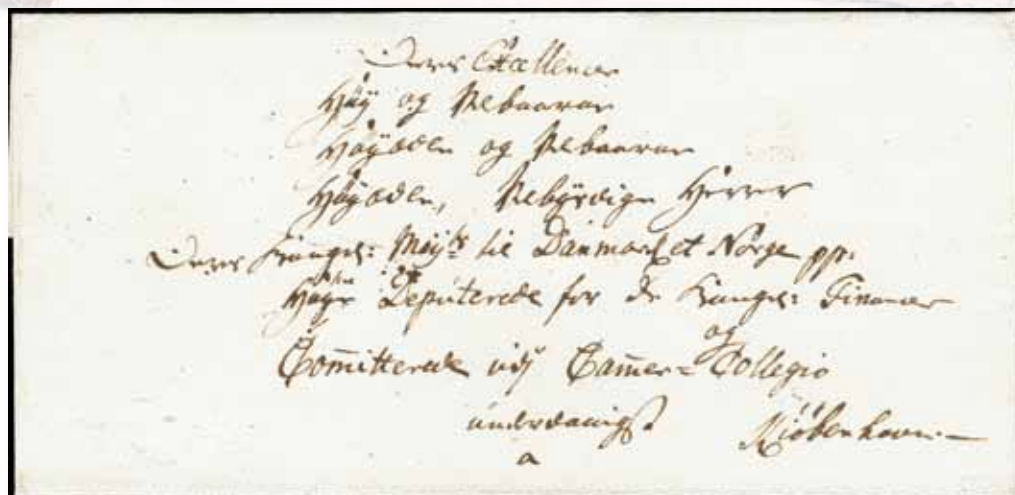 Deres Excellence
Høy og Velbaarne
Høyædle og Velbaarne
Høyædle, Velbyrdige Herrer
Deres Kongel: Mayts til Danmark et Norge pp.
Høye Deputerede for de Kongel: Financer
og
Committerede udj Cammer= Collegio
underdanigst Kiøbenhavn
a